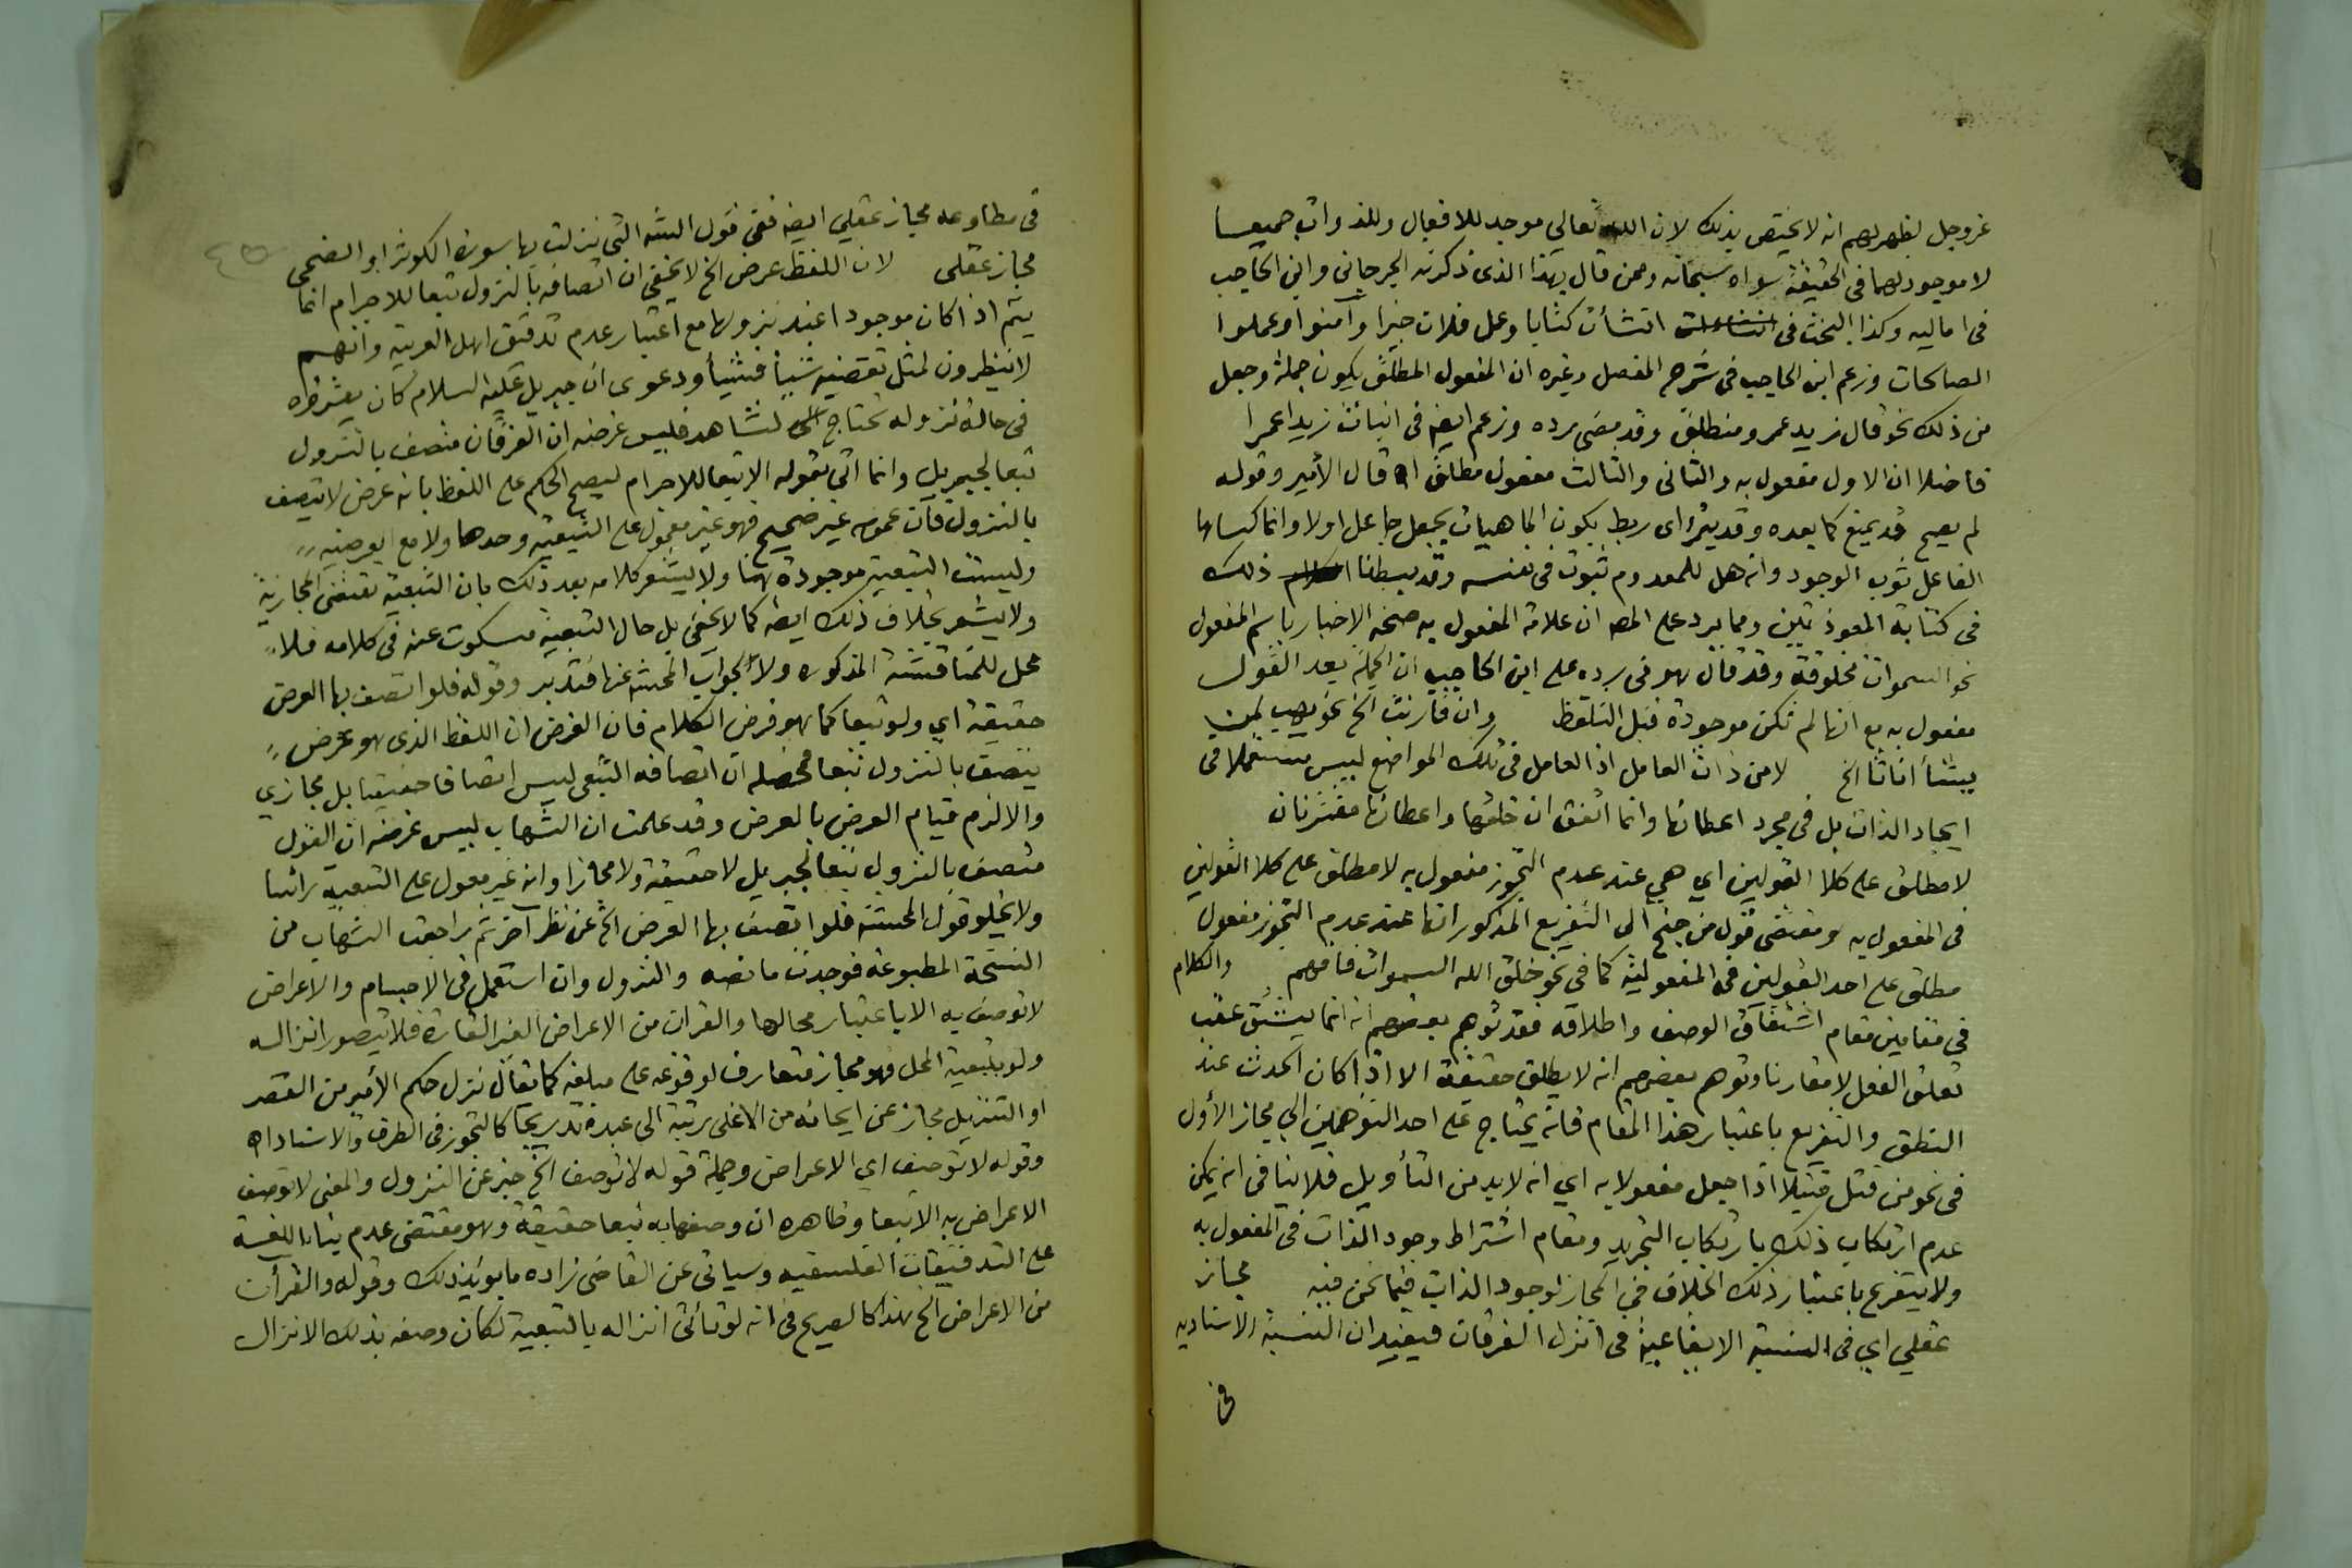 عز وجل لظهر لهم انه لا يختص بذلك لان الله تعالى موجد للافعال وللذوات جميعا
لا موجود لهما فى الحقيقة سواه سبحانه وممن قال بهذا الذى ذكرته الجرجانى وابن الحاجب
فى اماليه وكذا البحث فى انشأت كتابا وعمل فلان خيرا وآمنوا وعملوا
الصالحات وزعم ابن الحاجب فى شرح المفصل وغيره ان المفعول المطلق يكون جملة وجعل
من ذلك نحو قال زيد عمرو منطلق وقد مضى رده وزعم ايضا فى انبأت زيدا عمرا
فاضلا ان الاول مفعول به والثانى والثالث مفعول مطلق اه قال الأمير وقوله
لم يصح قد يمنع كما بعده وقد يثرى اى ربط بكون الماهيات بجعل جاعل اولا وانما كساها
الفاعل ثوب الوجود وانه هل للمعدوم ثبوت فى نفسه وقد بسطنا ذلك
فى كتابة المعوذتين ومما يرد على المص ان علامة المفعول به صحة الاخبار باسم المفعول
نحو السموات مخلوقة وقد قال هو فى رده على ابن الحاجب ان الجملة بعد القول
مفعول به مع انها لم تكن موجودة قبل التلفظ وان قارنت الخ نحو يهب لمن
يشأ اناثا الخ لا من ذات العامل اذ العامل فى تلك المواضع ليس مستعملا فى
ايجاد الذات بل فى مجرد اعطائها وانما اتفق ان خلقها واعطائها مقترنان
لا مطلق على كلا القولين اي هي عند عدم التجوز مفعول به لا مطلق على كلا القولين
فى المفعول به ومقتضى قول من جنح الى التفريع المذكور انها عند عدم التجوز مفعول
مطلق على احد القولين فى المفعولية كما فى نحو خلق الله السموات فافهم والكلام
فى مقامين مقام اشتقاق الوصف واطلاقه فقد توهم بعضهم انه انما يشتق عقب
تعلق الفعل لا مقارنا وتوهم بعضهم انه لا يطلق حقيقة الا اذا كان الحدث عند
النطق والتفريع باعتبار هذا المقام فانه يحتاج على احد التوهمين الى مجاز الأول
فى نحو من قتل قتيلا اذا جعل مفعولا به اي انه لا بد من التأويل فلا ينافى انه يمكن
عدم ارتكاب ذلك بارتكاب التجريد ومقام اشتراط وجود الذات فى المفعول به
ولا يتفرع باعتبار ذلك الخلاف فى المجاز لوجود الذات فيما نحن فيه مجاز
عقلي اي فى النسبة الايقاعية فى انزل الفرقان فيفيد ان النسبة الاسنادية
فى
فى مطاوعه مجاز عقلي ايضا ففى قول السنة التى نزلت بها سورة الكوثر او الضحى
مجاز عقلى لان اللفظ عرض الخ لا يخفى ان اتصافه بالنزول تبعا للاجرام انما
يتم اذا كان موجودا عند نزولها مع اعتبار عدم تدقيق اهل العربية وانهم
لا ينظرون لمثل تقضيه شيأ فشيأ ودعوى ان جبريل عليه السلام كان يقرؤه
فى حالة نزوله تحتاج لشاهد فليس غرضه ان الفرقان متصف بالنزول
تبعا لجبريل وانما اتى بقوله الا تبعا للاجرام ليصح الحكم على اللفظ بانه عرض لا يتصف
بالنزول فان عمومه غير صحيح فهو غير معول على التبعية وحدها ولا مع
وليست التبعية موجودة هنا ولا يشعر كلامه بعد ذلك بان التبعية تقتضى المجازية
ولا يشعر بخلاف ذلك ايضا كما لا يخفى بل حال التبعية مسكوت عنه فى كلامه فلا
محل للمناقشة المذكورة ولا لجواب المحشى عنها فتدبر وقوله فلو اتصف بها العرض
حقيقة اي ولو تبعا كما هو فرض الكلام فان الفرض ان اللفظ الذى هو عرض
يتصف بالنزول تبعا فمحصله ان اتصافه التبعى ليس اتصافا حقيقيا بل مجازي
والا لزم قيام العرض بالعرض وقد علمت ان الشهاب ليس غرضه ان القول
متصف بالنزول تبعا لجبريل لا حقيقة ولا مجازا وانه غير معول على التبعية رأسا
ولا يخلو قول المحشى فلو اتصف بها العرض الخ عن نظر آخر ثم راجعت الشهاب من
النسخة المطبوعة فوجدت ما نصه والنزول وان استعمل فى الاجسام والاعراض
لا توصف به الا باعتبار محالها والقران من الاعراض الغير القارة فلا يتصور انزاله
ولو بتبعية المحل فهو مجاز متعارف لوقوعه على مبلغه كما يقال نزل حكم الأمير من القصر
او التنزيل مجاز عن ايحائه من الاعلى رتبة الى عبده تدريجا كالتجوز فى الطرف والاسناد اه
وقوله لا توصف اي الاعراض وجملة قوله لا توصف الخ خبر عن النزول والمعنى لا توصف
الاعراض به الا تبعا وظاهره ان وصفها به تبعا حقيقة وهو مقتضى عدم بناء اللغة
على التدقيقات الفلسفية وسيأتى عن القاضى زاده ما يؤيد ذلك وقوله والقرأن
من الاعراض الخ هذا كالصريح فى انه لو تأتى انزاله بالتبعية لكان وصفه بذلك الانزال